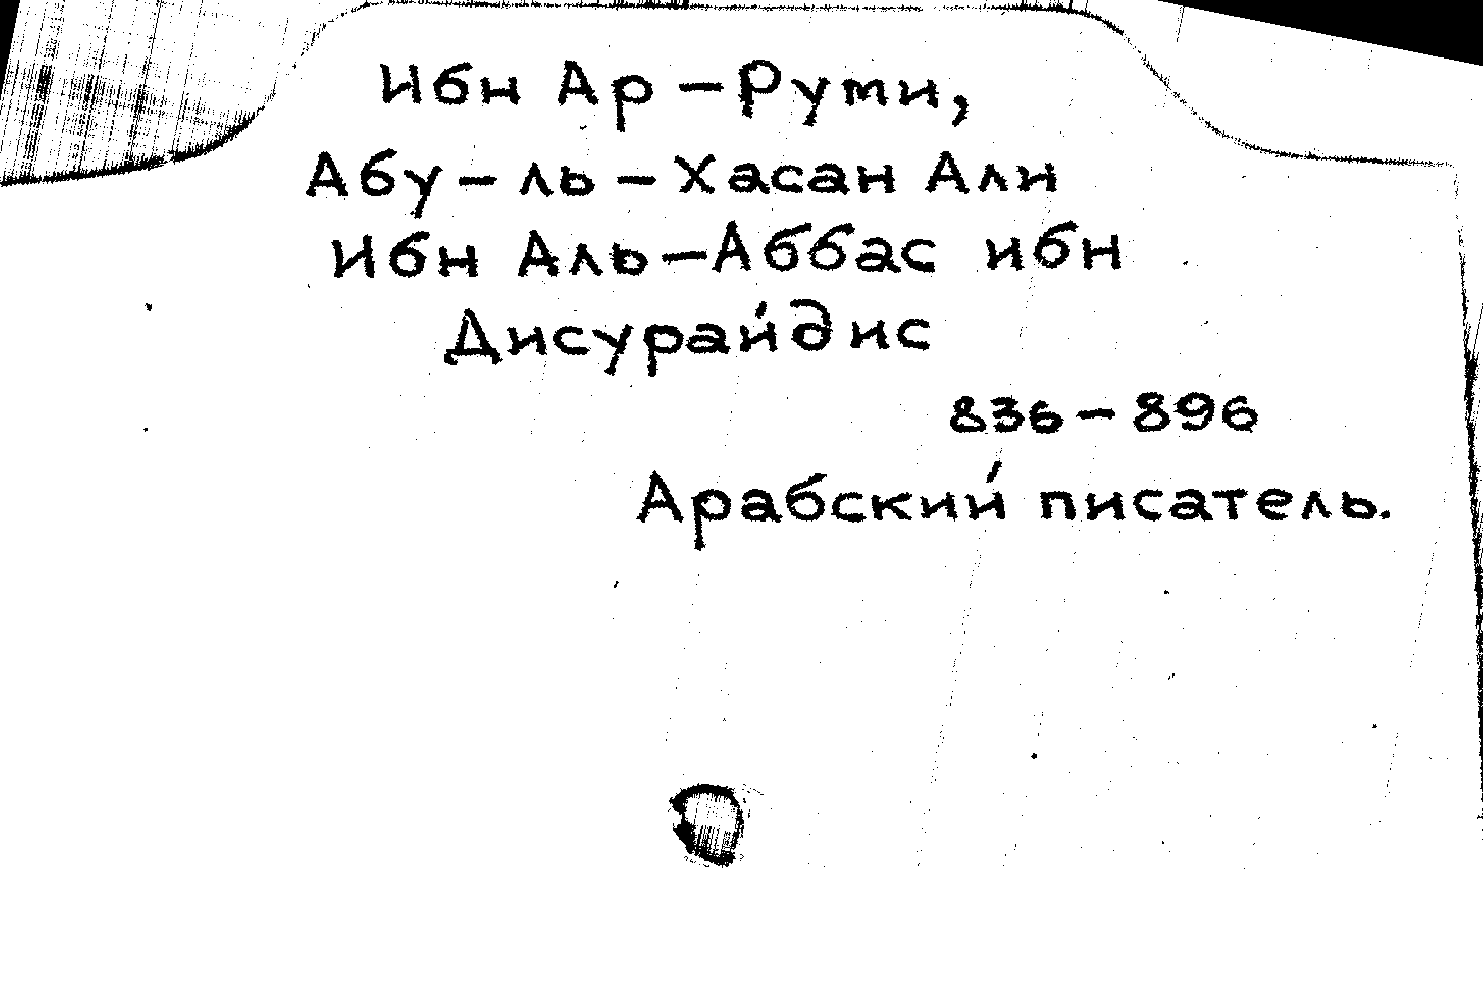 Ибн Ар-Руми,
Абу-ль-Хасан Али
Ибн Аль-Аббас ибн
Дисурайдис
836-896
Арабский писатель.